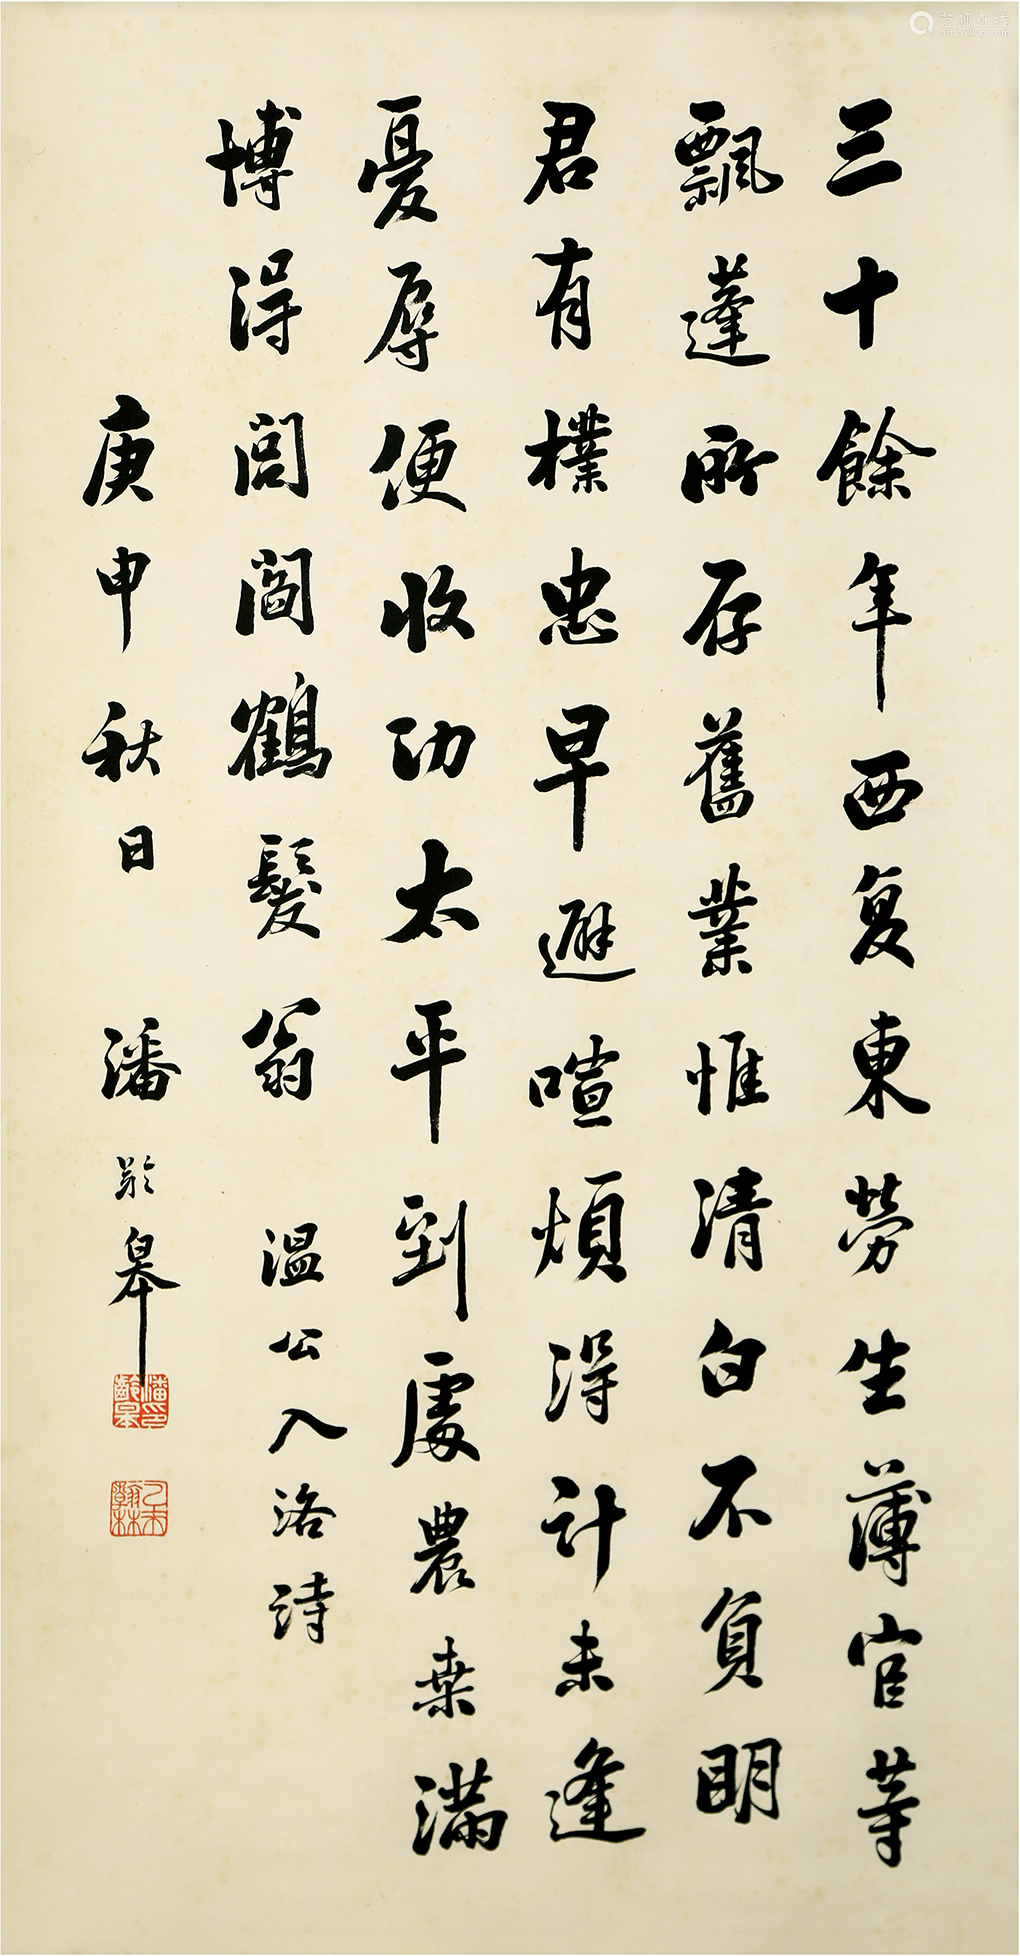 三十餘年西復東勞生薄官等
飄蓬所存舊業惟清白不負明
君有樸忠早避喧煩得計未逢
憂辱便收功太平到處農桑滿
博得閭閻鶴髮翁
溫公入洛詩
庚申秋日
潘齡皋
潘印齡皋
乙未翰林
艺狐在线
artfoxlive.com